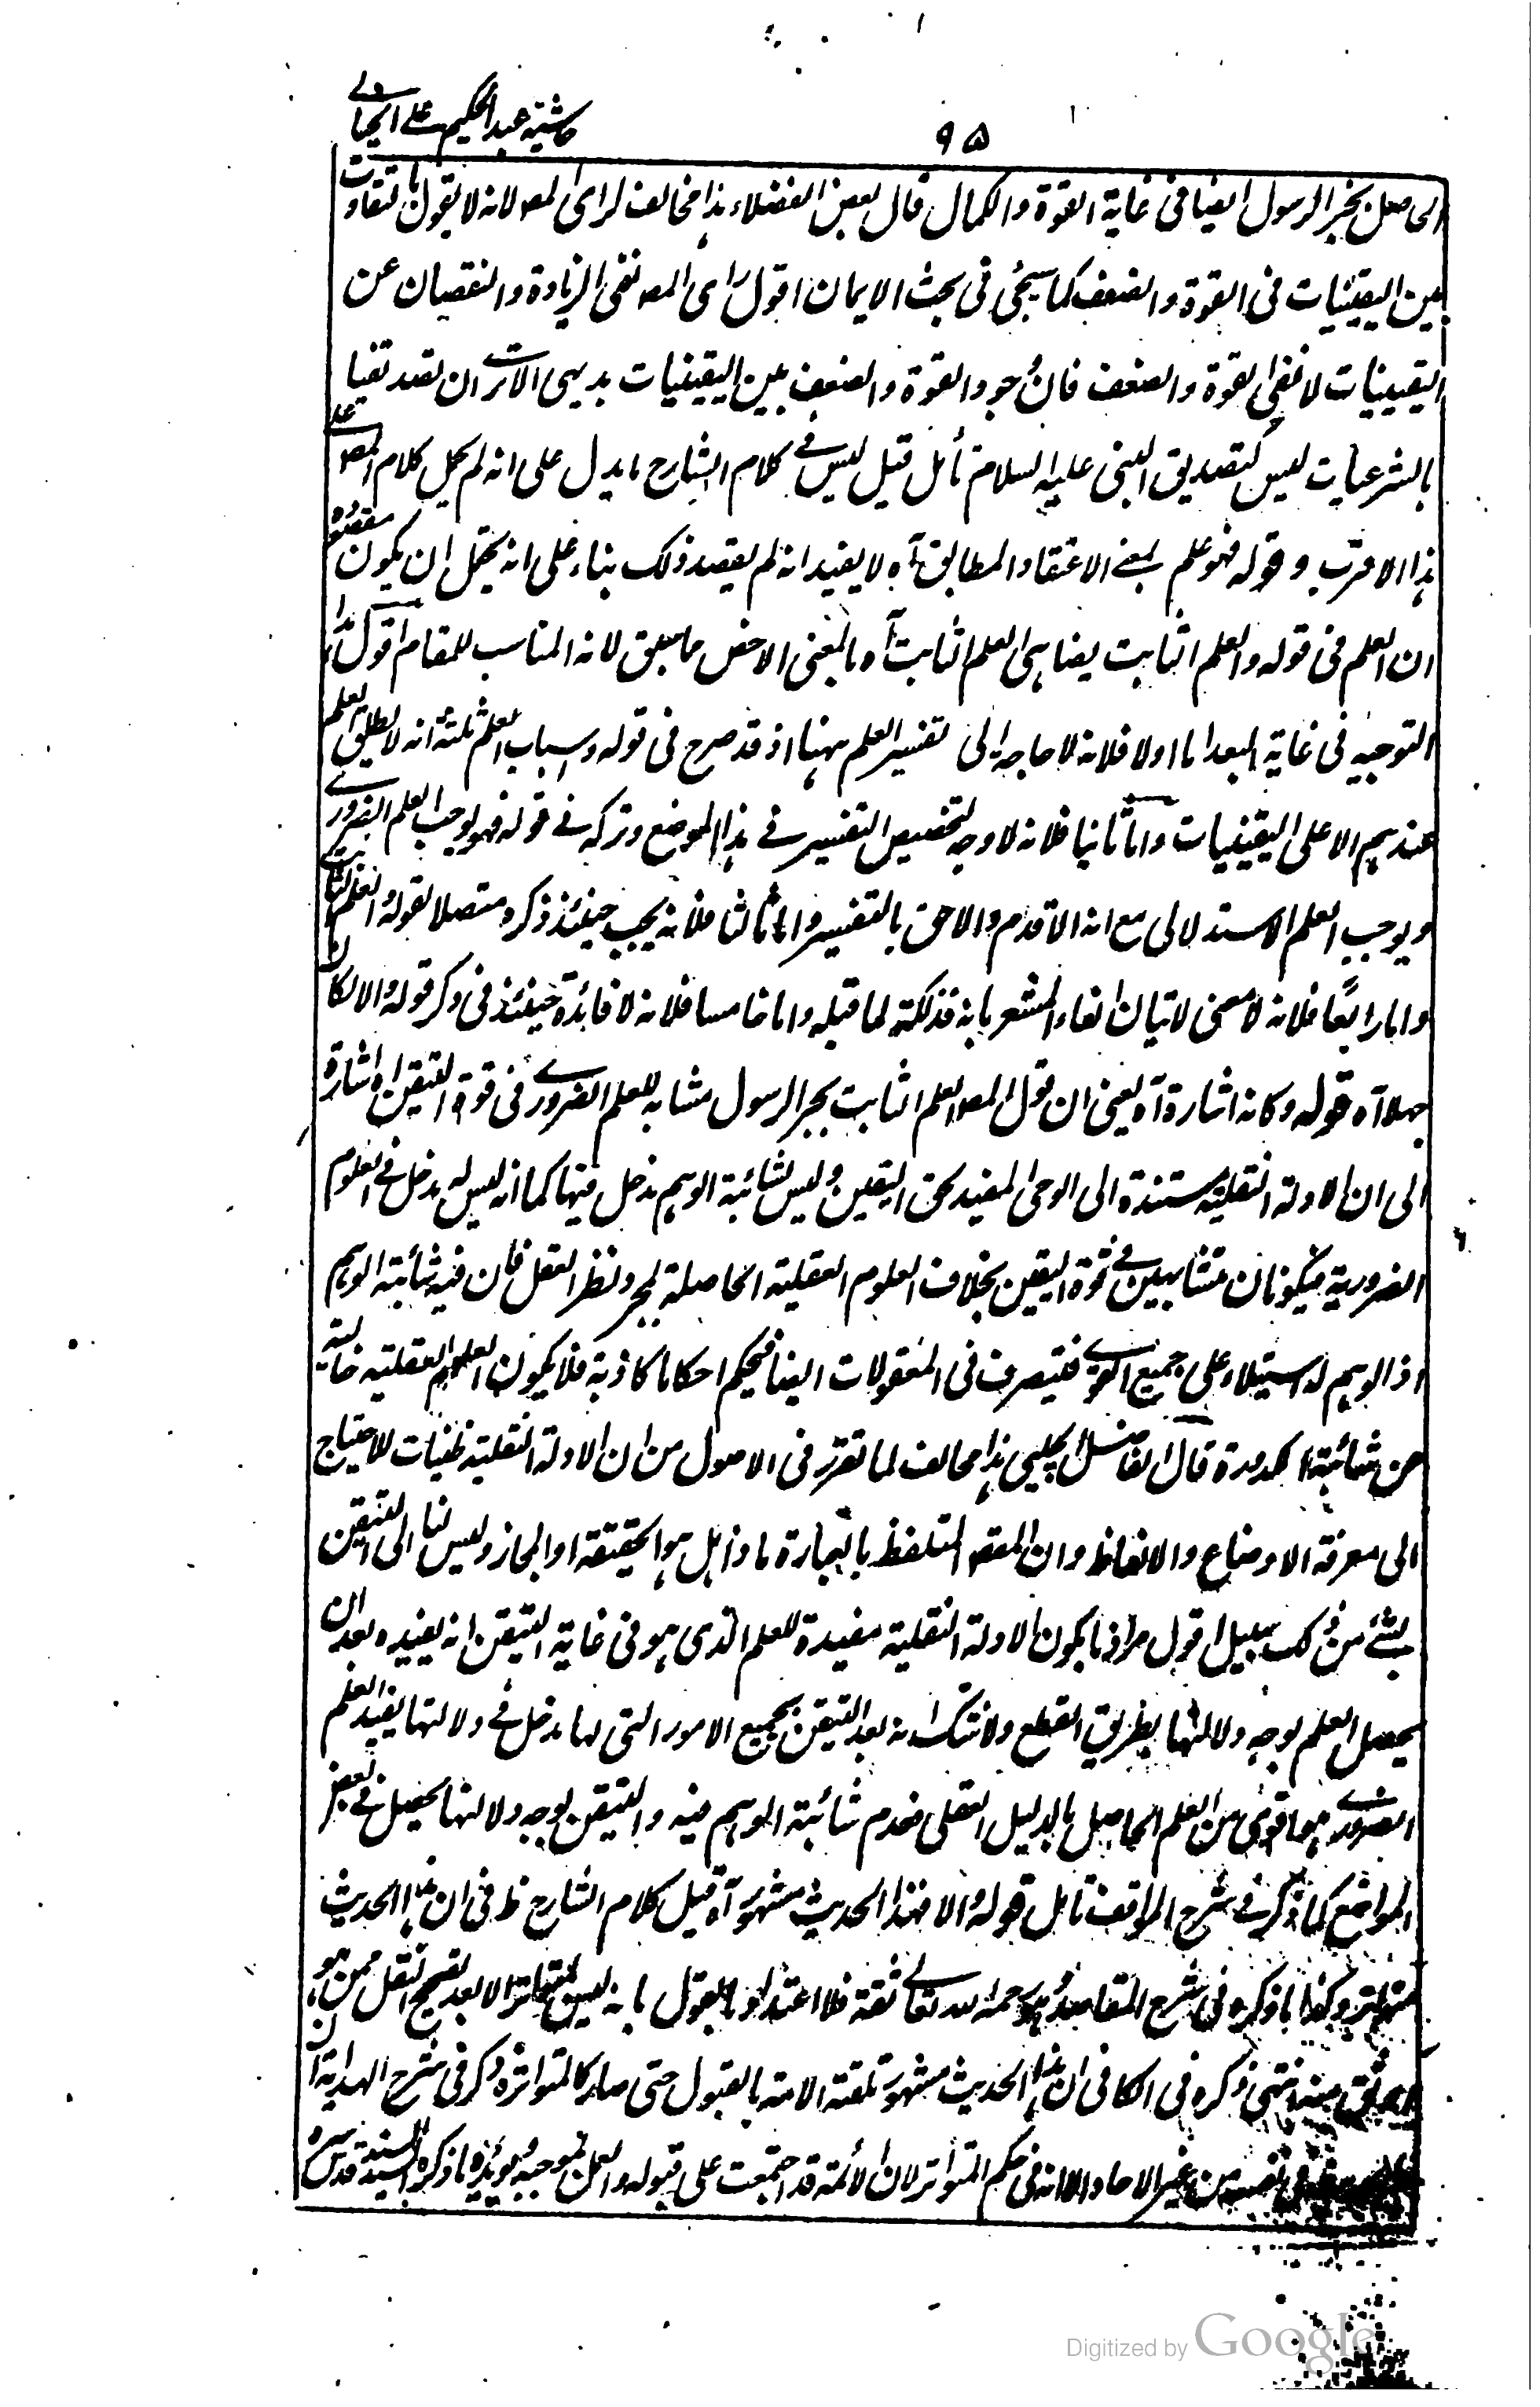 ٩٥
حاشية عبد الحكيم على الخيالى
الحاصل بخبر الرسول ايضا فى غاية القوة والكمال قال بعض الفضلاء هذا مخالف لراى المصـ لانه لا يقول بالتفاوت
بين اليقينيات فى القوة والضعف كما سيجئ فى بحث الايمان اقول راى المصـ نفى الزيادة والنقصان عن
اليقينيات لا نفى القوة والضعف فان وجود القوة والضعف بين اليقينيات بديهى الا ترى ان تصديقنا
بالشرعيات ليس كتصديق النبى عليه السلام تأمل قيل ليس فى كلام الشارح ما يدل على انه لم يحمل كلام المصـ على
هذا الاقرب و قوله فهو علم بمعنى الاعتقاد المطابق آه لا يفيد انه لم يقصد ذلك بناء على انه يحتمل ان يكون مقصوده
ان العلم فى قوله والعلم الثابت يضاهى العلم الثابت آه بالمعنى الاخص ما سبق لانه المناسب للمقام اقول هذا
التوجيه فى غاية البعد اما اولا فلانه لا حاجة الى تفسير العلم ههنا اذ قد صرح فى قوله واسباب العلم ثلثة انه لا يطلق العلم
عندهم الا على اليقينيات واما ثانيا فلانه لا وجه لتخصيص التفسير فى هذا الموضع وتركه فى قوله فهو يوجب العلم الضرورى
ويوجب العلم الاستدلالى مع انه الاقدم والاحق بالتفسير واما ثالثا فلانه يجب حينئذ ذكره متصلا بقوله والعلم الثابت
واما رابعًا فلانه لا معنى لاتيان الفاء المشعر بانه فذلكة لما قبله واما خامسا فلانه لا فائدة حينئذ فى ذكر قوله والا لكان
جهلا آه قوله وكانه اشارة آه يعنى ان قول المصـ العلم الثابت بخبر الرسول مشابه للعلم الضرورى فى قوة التيقن اه اشارة
الى ان الادلة النقلية مستندة الى الوحى المفيد لحق اليقين وليس لشائبة الوهم مدخل فيها كما انه ليس له مدخل فى العلوم
الضرورية فيكونان متشابهين فى قوة اليقين بخلاف العلوم العقلية الحاصلة بمجرد نظر العقل فان فيه شائبة الوهم
اذ الوهم له استيلاء على جميع القوى فيتصرف فى المعقولات ايضا فيحكم احكاما كاذبة فلا يكون العلوم العقلية خالية
عن شائبة الكدورة قال الفاضل الچلپى هذا مخالف لما تقرر فى الاصول من ان الادلة النقلية ظنيات للاحتياج
الى معرفة الاوضاع والالفاظ وان المقصـ المتلفظ بالعبارة ماذا هل هو الحقيقة او المجاز وليس لنا الى التيقن
بشئ من ذلك سبيل اقول مراده بكون الادلة النقلية مفيدة للعلم الذى هو فى غاية التيقن انه يفيده بعد ان
يحصل العلم بوجه دلالتها بطريق القطع ولا شك انه بعد التيقن بجميع الامور التى لها مدخل فى دلالتها يفيد العلم
الضرورى هو اقوى من العلم الحاصل بالدليل العقلى لعدم شائبة الوهم فيه والتيقن بوجه دلالتها يحصل فى بعض
المواضع كما ذكر فى شرح المواقف تأمل قوله والا فهذا الحديث مشهور آه قيل كلام الشارح ظ فى ان هذا الحديث
متواتر وكذا ما ذكره فى شرح المقاصد وهو رحمه الله تعالى ثقة فلا اعتداد بالقول بانه ليس بمتواتر الا بعد تصحيح النقل ممن هو
اوثق منه انتهى ذكره فى الكافى ان هذا الحديث مشهور تلقته الامة بالقبول حتى صار كالمتواتر ذكر فى شرح الهداية ان
من غير الاحاد الا انه فى حكم المتواتر لان الائمة قد اجتمعت على قبوله والعمل بموجبه ويؤيده ما ذكره السيد السند قدس سره
Digitized by Google